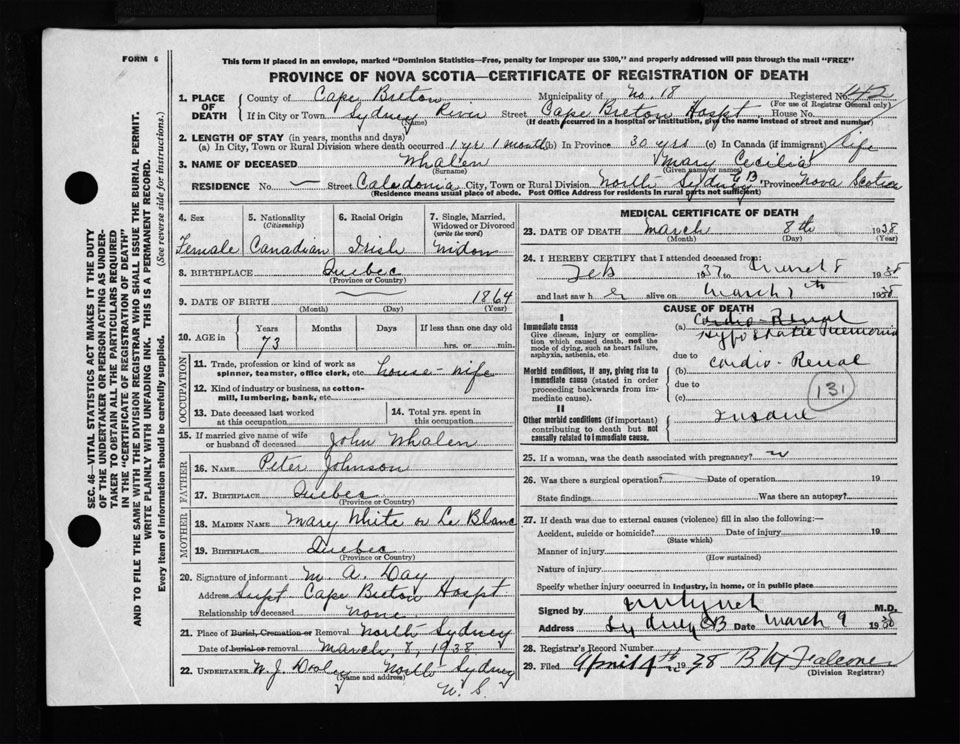 FORM 6
This form if placed in an envelope, marked "Dominion Statistics—Free, penalty for improper use $300," and properly addressed will pass through the mail "FREE"
PROVINCE OF NOVA SCOTIA—CERTIFICATE OF REGISTRATION OF DEATH
SEC. 46—VITAL STATISTICS ACT MAKES IT THE DUTY
OF THE UNDERTAKER OR PERSON ACTING AS UNDER-
TAKER TO OBTAIN ALL THE PARTICULARS REQUIRED
IN THE "CERTIFICATE OF REGISTRATION OF DEATH"
AND TO FILE THE SAME WITH THE DIVISION REGISTRAR WHO SHALL ISSUE THE BURIAL PERMIT.
WRITE PLAINLY WITH UNFADING INK. THIS IS A PERMANENT RECORD.
Every item of information should be carefully supplied. (See reverse side for instructions.)
1. PLACE OF DEATH County of Cape Breton Municipality of No. 18 Registered No. 42
(For use of Registrar General only)
If in City or Town Sydney River (Name) Street Cape Breton Hospt House No.
(If death occurred in a hospital or institution, give the name instead of street and number)
2. LENGTH OF STAY (in years, months and days)
(a) In City, Town or Rural Division where death occurred 1 yr 1 month (b) In Province 30 yrs (c) In Canada (if immigrant) life
3. NAME OF DECEASED Whalen Mary Cecilia
(Surname) (Given name or names)
RESIDENCE No. — Street Caledonia City, Town or Rural Division North Sydney C.B. Province Nova Scotia
(Residence means usual place of abode. Post Office Address for residents in rural parts not sufficient)
4. Sex 5. Nationality (Citizenship) 6. Racial Origin 7. Single, Married, Widowed or Divorced (write the word)
Female Canadian Irish Widow
8. BIRTHPLACE Quebec
(Province or Country)
9. DATE OF BIRTH 1864
(Month) (Day) (Year)
10. AGE in Years Months Days If less than one day old
73 hrs. or min.
OCCUPATION
11. Trade, profession or kind of work as spinner, teamster, office clerk, etc. house-wife
12. Kind of industry or business, as cotton-mill, lumbering, bank, etc.
13. Date deceased last worked at this occupation 14. Total yrs. spent in this occupation
15. If married give name of wife or husband of deceased John Whalen
FATHER
16. NAME Peter Johnson
17. BIRTHPLACE Quebec
(Province or Country)
MOTHER
18. MAIDEN NAME Mary White or Le Blanc
19. BIRTHPLACE Quebec
(Province or Country)
20. Signature of informant M. A. Day
Address Supt Cape Breton Hospt.
Relationship to deceased None
21. Place of Burial, Cremation or Removal North Sydney
Date of burial or removal March, 8, 1938
22. UNDERTAKER W. J. Dooley North Sydney
(Name and address) N. S.
MEDICAL CERTIFICATE OF DEATH
23. DATE OF DEATH March 8th 1938
(Month) (Day) (Year)
24. I HEREBY CERTIFY that I attended deceased from:
Feb 1937 to March 8 1938
and last saw her alive on March 7th 1938
CAUSE OF DEATH
I
Immediate cause
Give disease, injury or complication which caused death, not the mode of dying, such as heart failure, asphyxia, asthenia, etc
(a) Cardio-Renal
due to
Morbid conditions, if any, giving rise to immediate cause (stated in order proceeding backwards from immediate cause).
(b) Cardio-Renal
due to
(c) 131
II
Other morbid conditions (if important) contributing to death but not causally related to immediate cause.
Insane
25. If a woman, was the death associated with pregnancy?
26. Was there a surgical operation? Date of operation 19
State findings Was there an autopsy?
27. If death was due to external causes (violence) fill in also the following:—
Accident, suicide or homicide? Date of injury 19
(State which)
Manner of injury
(How sustained)
Nature of injury
Specify whether injury occurred in industry, in home, or in public place
Signed by M.D.
Address Sydney CB Date March 9 1938
28. Registrar's Record Number
29. Filed April 4th 1938 Falconer
(Division Registrar)